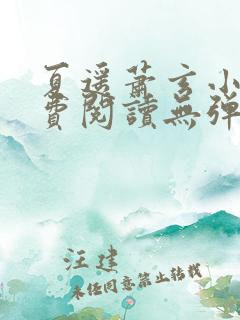 夏遥萧玄小
费阅读无弹
汪建
未经同意禁止转载